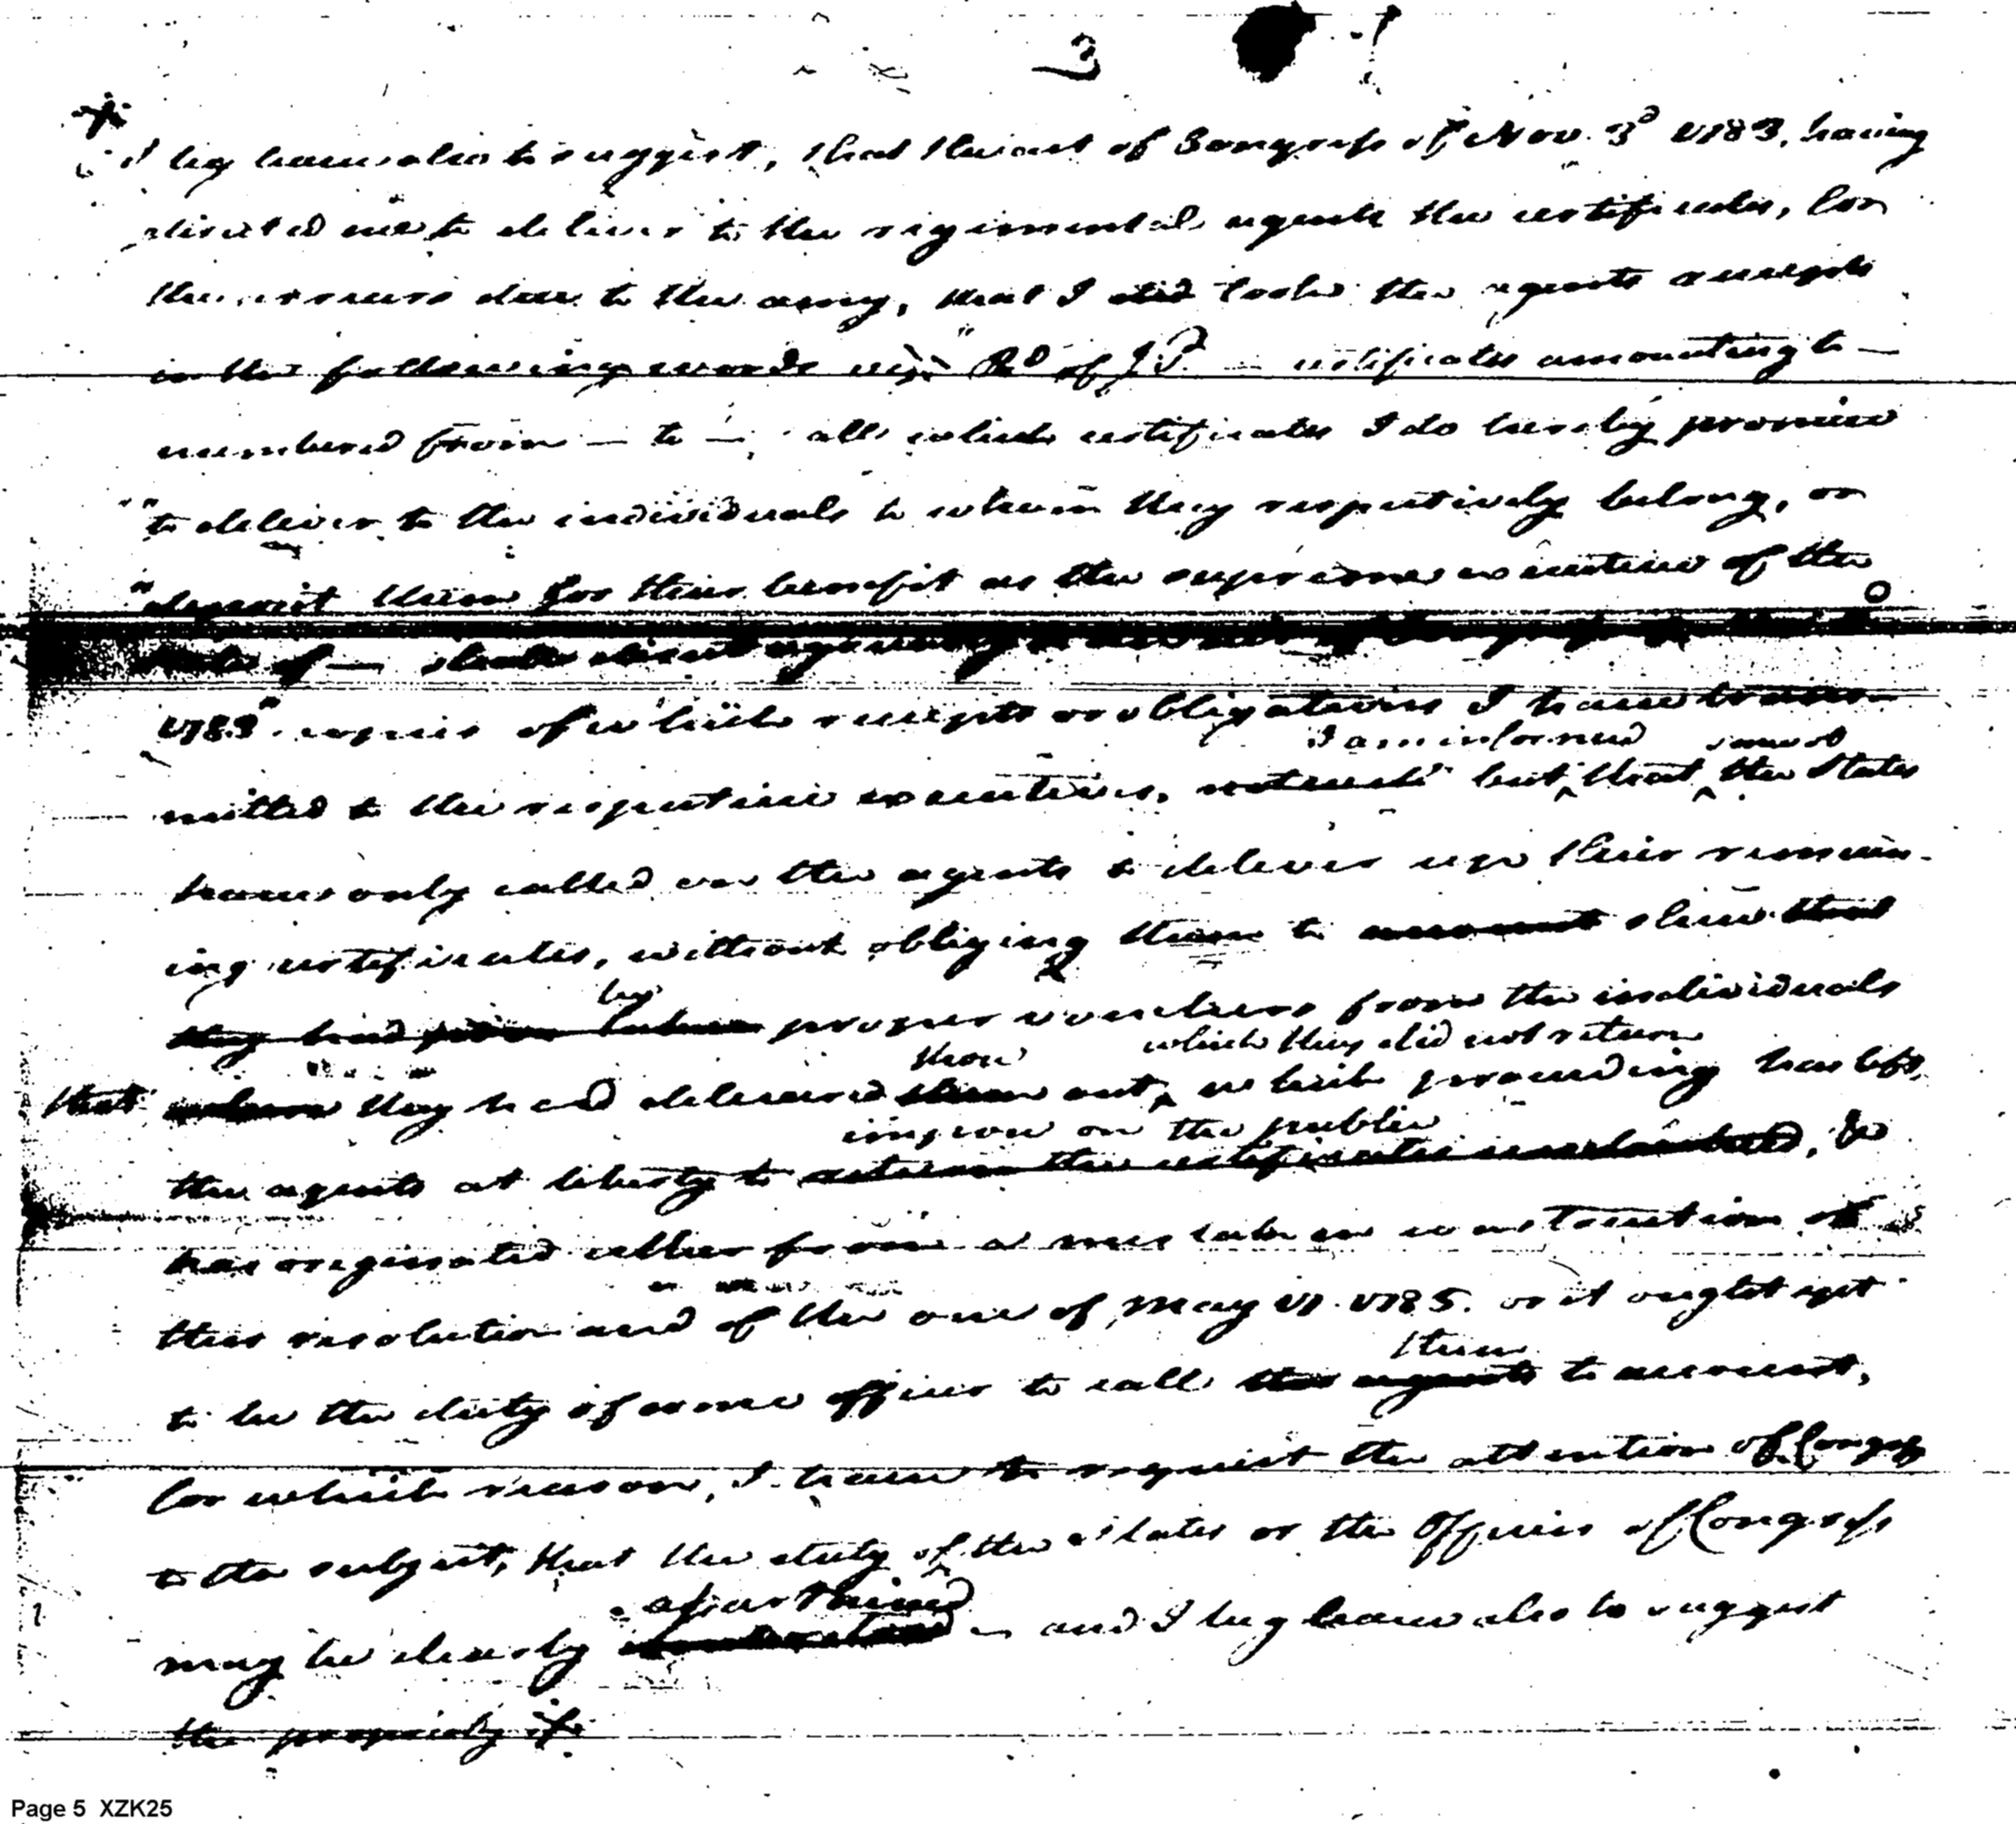 3
I beg leave also to suggest, that the act of Congress of Nov. 3d 1783, having
directed me to deliver to the regimental agents the certificates, for
the arrears due to the army, that I did take the agents receipts
in the following words viz; "Rd of J.P. — certificates amounting to —
numbered from — to —, all which certificates I do hereby promise
"to deliver to the individuals to whom they respectively belong, or
"deposit them for their benefit as the supreme executive of the
State of — shall direct agreeably to
1783". copies of which receipts or obligations I have trans-
I am informed some of
mitted to the respective executives, but that the States
have only called on the agents to deliver up their remain-
ing certificates, without obliging them to account shew that
by
they had taken proper vouchers from the individuals
thou which they did not return
that where they had delivered them out, which proceeding has left
impose on the public
the agents at liberty to return the certificates, &
has originated either from a mistaken construction of
this resolution and of the one of May 17. 1785. or it ought yet
them
to be the duty of some officer to call the agents to account,
for which reason, I have to request the attention of Congress
to the subject, that the duty of the States or the Officers of Congress
ascertained
may be clearly and I beg leave also to suggest
the propriety if
Page 5 XZK25